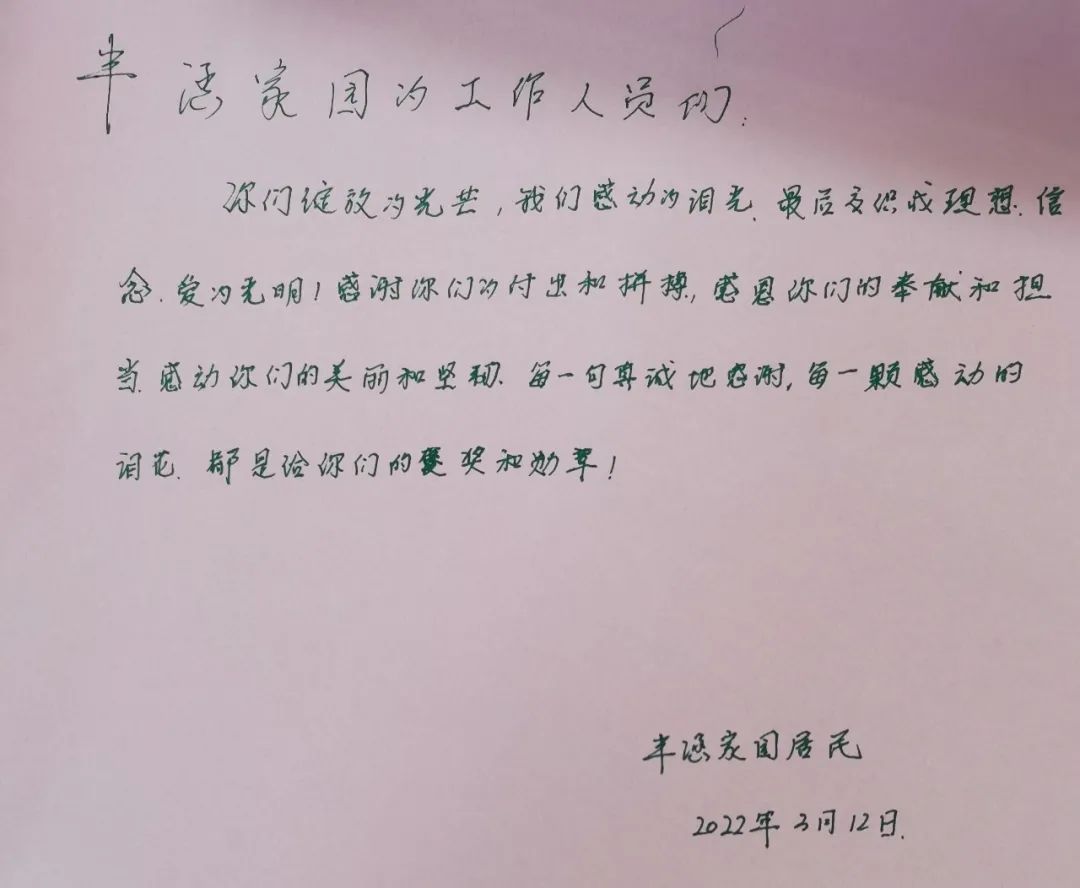 半涵家园的工作人员们:
你们绽放的光芒,我们感动的泪光.最后交织成理想.信
念.爱的光明!感谢你们的付出和拼搏,感恩你们的奉献和担
当.感动你们的美丽和坚韧.每一句真诚地感谢,每一颗感动的
泪花.都是给你们的褒奖和勋章!
半涵家园居民
2022年3月12日.